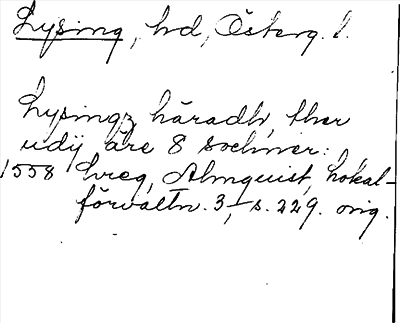 Lysing, hd, Österg. l.
Lysingz häradh, ther
udij äre 8 sochner:
1558 Almquist, Lokal-
förvaltn. 3, s. 229. orig.